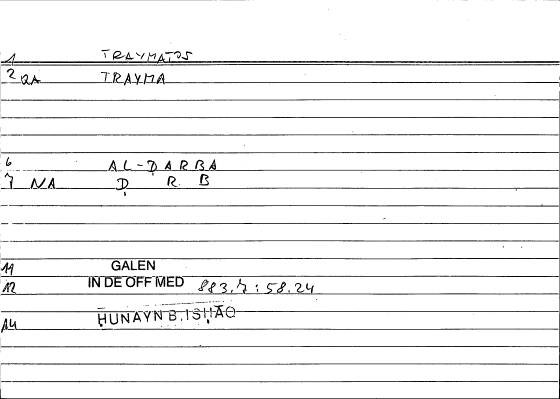 1 TRAYMATOS
2 QA TRAYMA
6 AL-ḌARBA
7 NA Ḍ R B
11 GALEN
12 IN DE OFF MED 883.7:58.24
14 ḤUNAYN B. ISḤĀQ